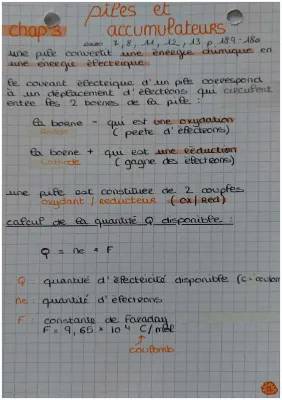 chap 3
piles et
accumulateurs
exo 7, 8, 11, 12, 13 p 189-180
une pile convertit une énergie chimique en
une énergie électrique.
le courant électrique d'un pile correspond
à un déplacement d'électrons qui circulent
entre les 2 bornes de la pile :
la borne - qui est une oxydation
Anode ( perte d'électrons)
la borne + qui est une réduction
Cathode ( gagne des électrons)
une pile est constituée de 2 couples
oxydant / réducteur (ox/Red)
calcul de la quantité Q disponible :
Q = ne * F
Q : quantité d'électricité disponible (C = coulom
ne : quantité d'électrons
F : constante de Faraday
F = 9,65 * 10⁴ C/mol
coulomb